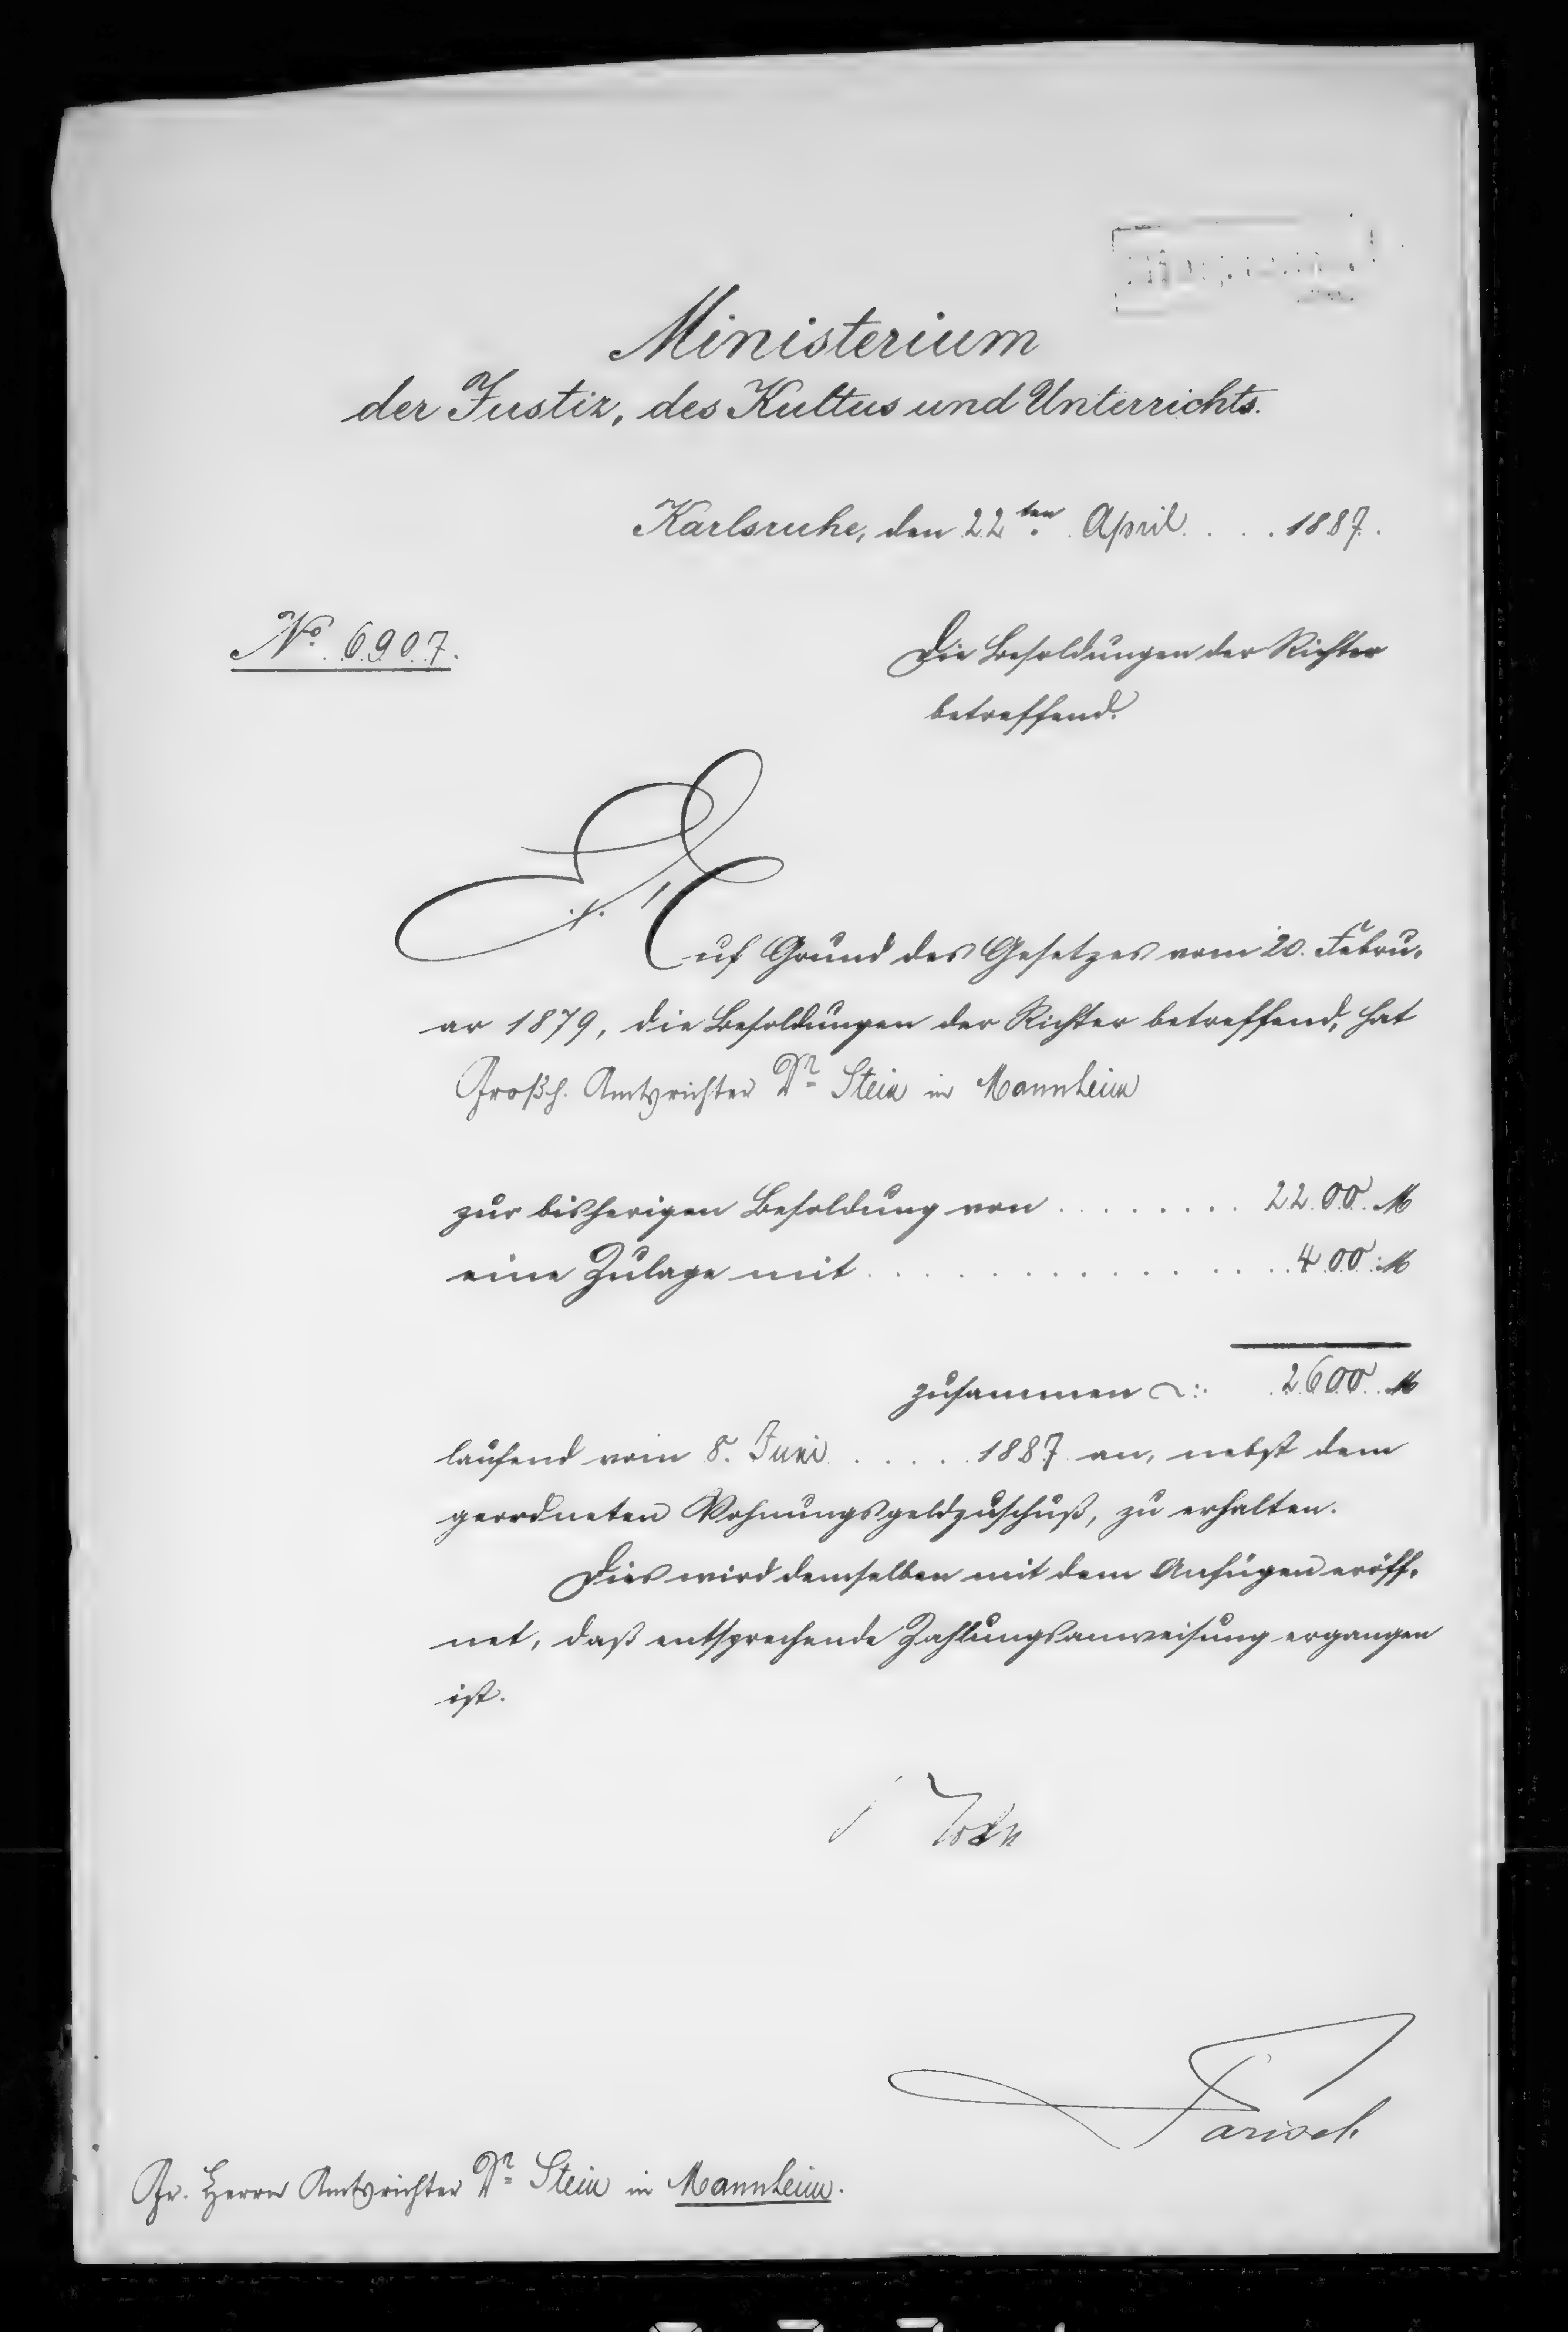 Ministerium
der Justiz, des Kultus und Unterrichts.
Karlsruhe, den 22ten April 1887.
No. 6907.
Die Besoldungen der Richter
betreffend.
Auf Grund des Gesetzes vom 20. Febru-
ar 1879, die Besoldungen der Richter betreffend, hat
Großh. Amtsrichter Dr. Stein in Mannheim
zur bisherigen Besoldung von . . . . . . . . 2200 M
eine Zulage mit . . . . . . . . . . . . . . 400 M
zusammen 2600 M
laufend vom 8. Juni . . . . . 1887 an, nebst dem
geordneten Wohnungsgeldzuschuß, zu erhalten.
Dies wird demselben mit dem Anfügen eröff-
net, daß entsprechende Zahlungsanweisung ergangen
ist.
Gr. Herrn Amtsrichter Dr. Stein in Mannheim.